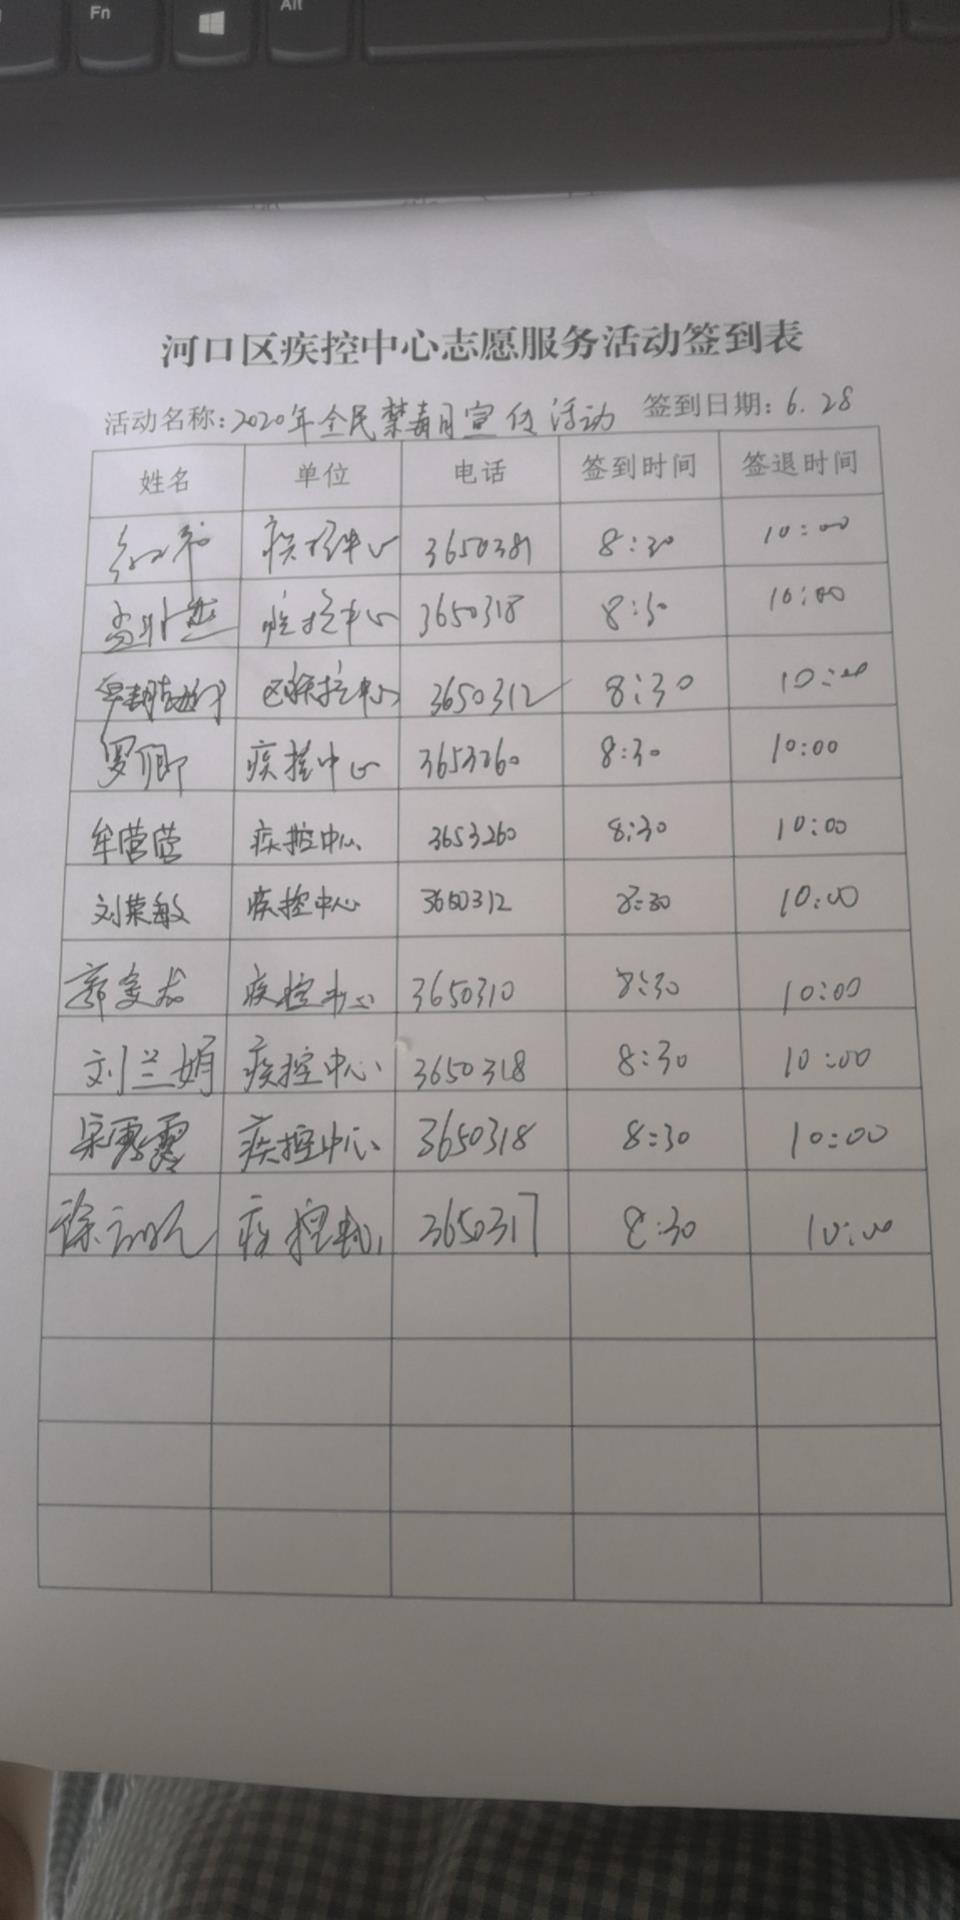 Fn
Alt
河口区疾控中心志愿服务活动签到表
活动名称:2020年全民禁毒月宣传活动 签到日期:6.28
姓名 单位 电话 签到时间 签退时间
疾控中心 3650381 8:30 10:00
疾控中心 3650318 8:30 10:00
区疾控中心 3650312 8:30 10:00
罗卿 疾控中心 3653260 8:30 10:00
牟营营 疾控中心 3653260 8:30 10:00
刘荣敏 疾控中心 3650312 8:30 10:00
郭爱龙 疾控中心 3650310 8:30 10:00
刘兰娟 疾控中心 3650318 8:30 10:00
宋露露 疾控中心 3650318 8:30 10:00
疾控中心 3650317 8:30 10:00